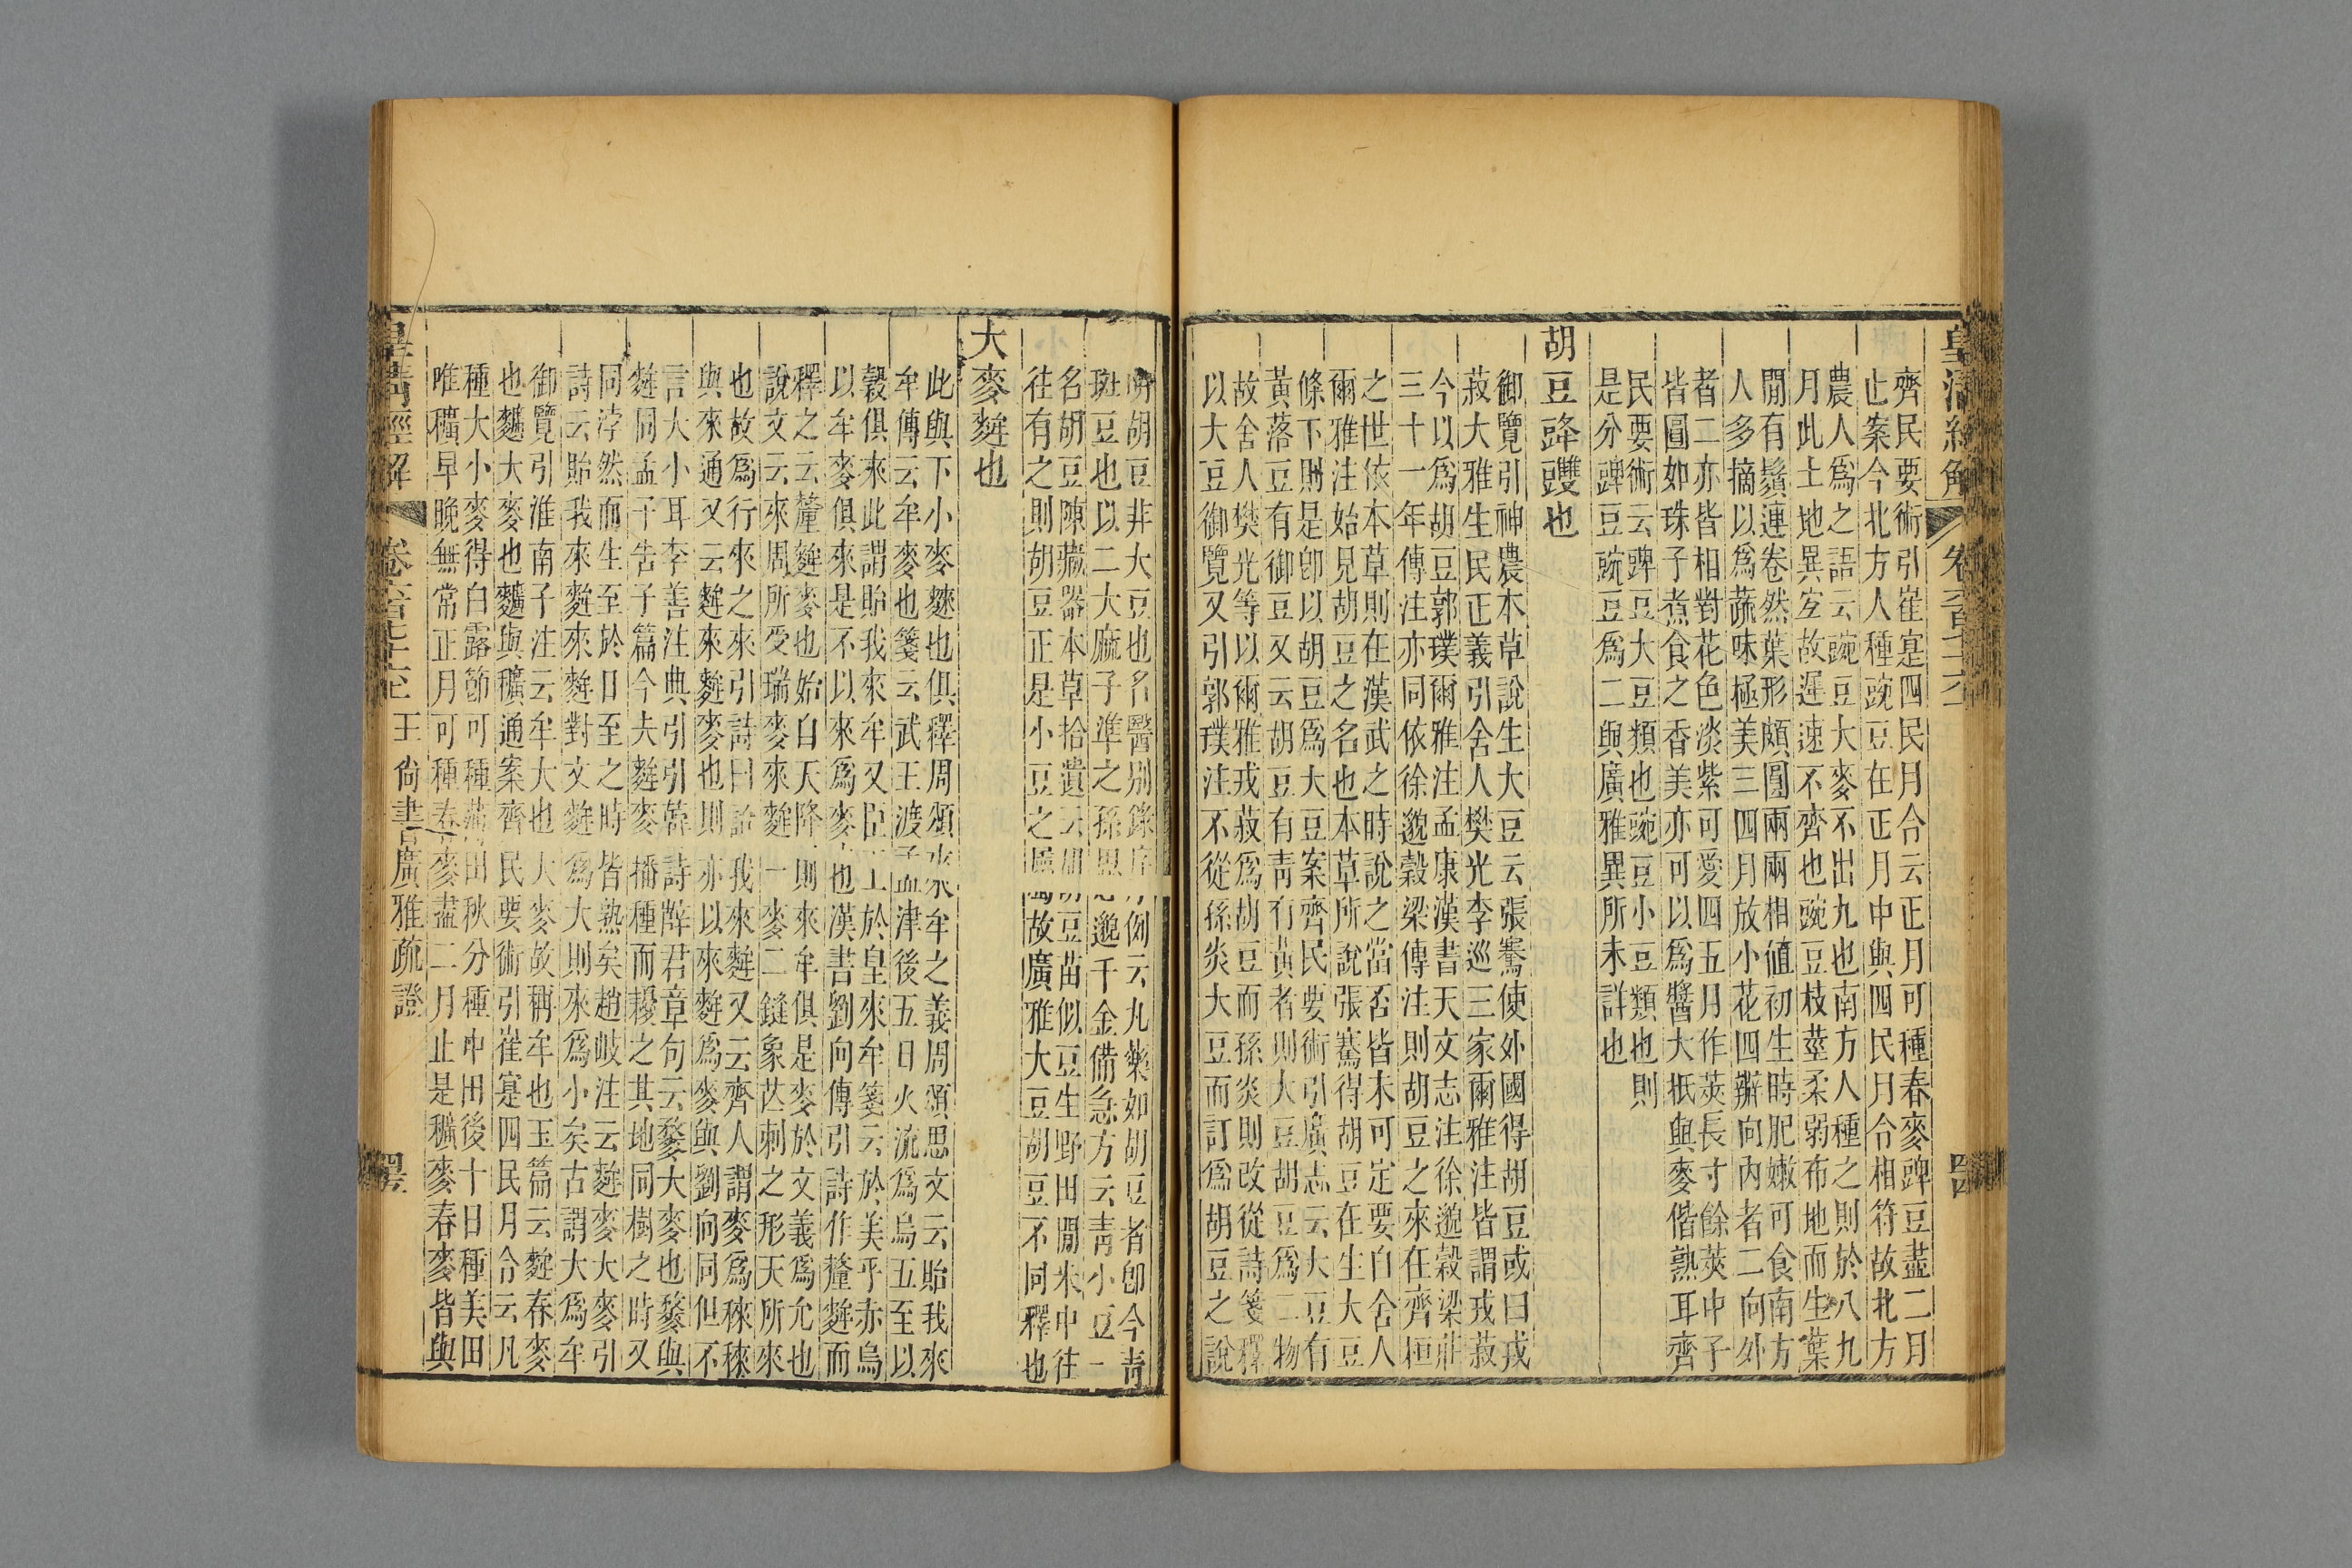 皇清經解 卷六百七十六
齊民要術引崔寔四民月令云正月可種春麥豍豆盡二月
止案今北方人種豌豆在正月中與四民月令相符故北方
農人爲之語云豌豆大麥不出九也南方人種之則於八九
月此土地異宜故遲速不齊也豌豆枝莖柔弱布地而生葉
閒有鬚連卷然葉形頗團兩兩相値初生時肥嫩可食南方
人多摘以爲蔬味極美三四月放小花四瓣向內者二向外
者二亦皆相對花色淡紫可愛四五月作莢長寸餘莢中子
皆圓如珠子煮食之香美亦可以爲醬大抵與麥偕熟耳齊
民要術云豍豆大豆類也豌豆小豆類也則
是分豍豆豌豆爲二與廣雅異所未詳也
胡豆䜶䝄也
御覽引神農本草說生大豆云張騫使外國得胡豆或曰戎
菽大雅生民正義引舍人樊光李巡三家爾雅注皆謂戎菽
今以爲胡豆郭璞爾雅注孟康漢書天文志注徐邈穀梁莊
三十一年傳注亦同依徐邈穀梁傳注則胡豆之來在齊桓
之世依本草則在漢武之時說之當否皆未可定要自舍人
爾雅注始見胡豆之名也本草所說張騫得胡豆在生大豆
條下則是卽以胡豆爲大豆案齊民要術引廣志云大豆有
黃落豆有御豆又云胡豆有靑有黃者則大豆胡豆爲二物
故舍人樊光等以爾雅戎菽爲胡豆而孫炎則改從詩箋釋
以大豆御覽又引郭璞注不從孫炎大豆而訂爲胡豆之說
胡豆非大豆也名醫別錄序例云丸藥如胡豆者卽今靑
斑豆也以二大麻子準之孫思邈千金備急方云靑小豆一
名胡豆陳藏器本草拾遺云胡豆苗似豆生野田閒米中往
往有之則胡豆正是小豆之屬故廣雅大豆胡豆不同釋也
大麥麰也
此與下小麥麳也俱釋周頌來牟之義周頌思文云貽我來
牟傳云牟麥也箋云武王渡孟津後五日火流爲烏五至以
穀俱來此謂貽我來牟又臣工於皇來牟箋云於美乎赤烏
以牟麥俱來是不以來爲麥也漢書劉向傳引詩作釐麰而
釋之云釐麰麥也始自天降則來牟俱是麥於文義爲允也
說文云來周所受瑞麥來麰一麥二縫象芒刺之形天所來
也故爲行來之來引詩曰詒我來麰又云齊人謂麥爲䅘䅘
與來通又云麰來麰麥也則亦以來麰爲麥與劉向同但不
言大小耳李善注典引引韓詩薛君章句云䵄大麥也䵄與
麰同孟子告子篇今夫麰麥播種而耰之其地同樹之時又
同浡然而生至於日至之時皆熟矣趙岐注云麰麥大麥引
詩云貽我來麰來麰對文麰爲大則來爲小矣古謂大爲牟
御覽引淮南子注云牟大也大麥故稱牟也玉篇云麰春麥
也䴷大麥也䴷與穬通案齊民要術引崔寔四民月令云凡
種大小麥得白露節可種薄田秋分種中田後十日種美田
唯穬早晚無常正月可種春麥盡二月止是穬麥春麥皆與
皇淸經解 卷六百七十六 王尙書廣雅疏證